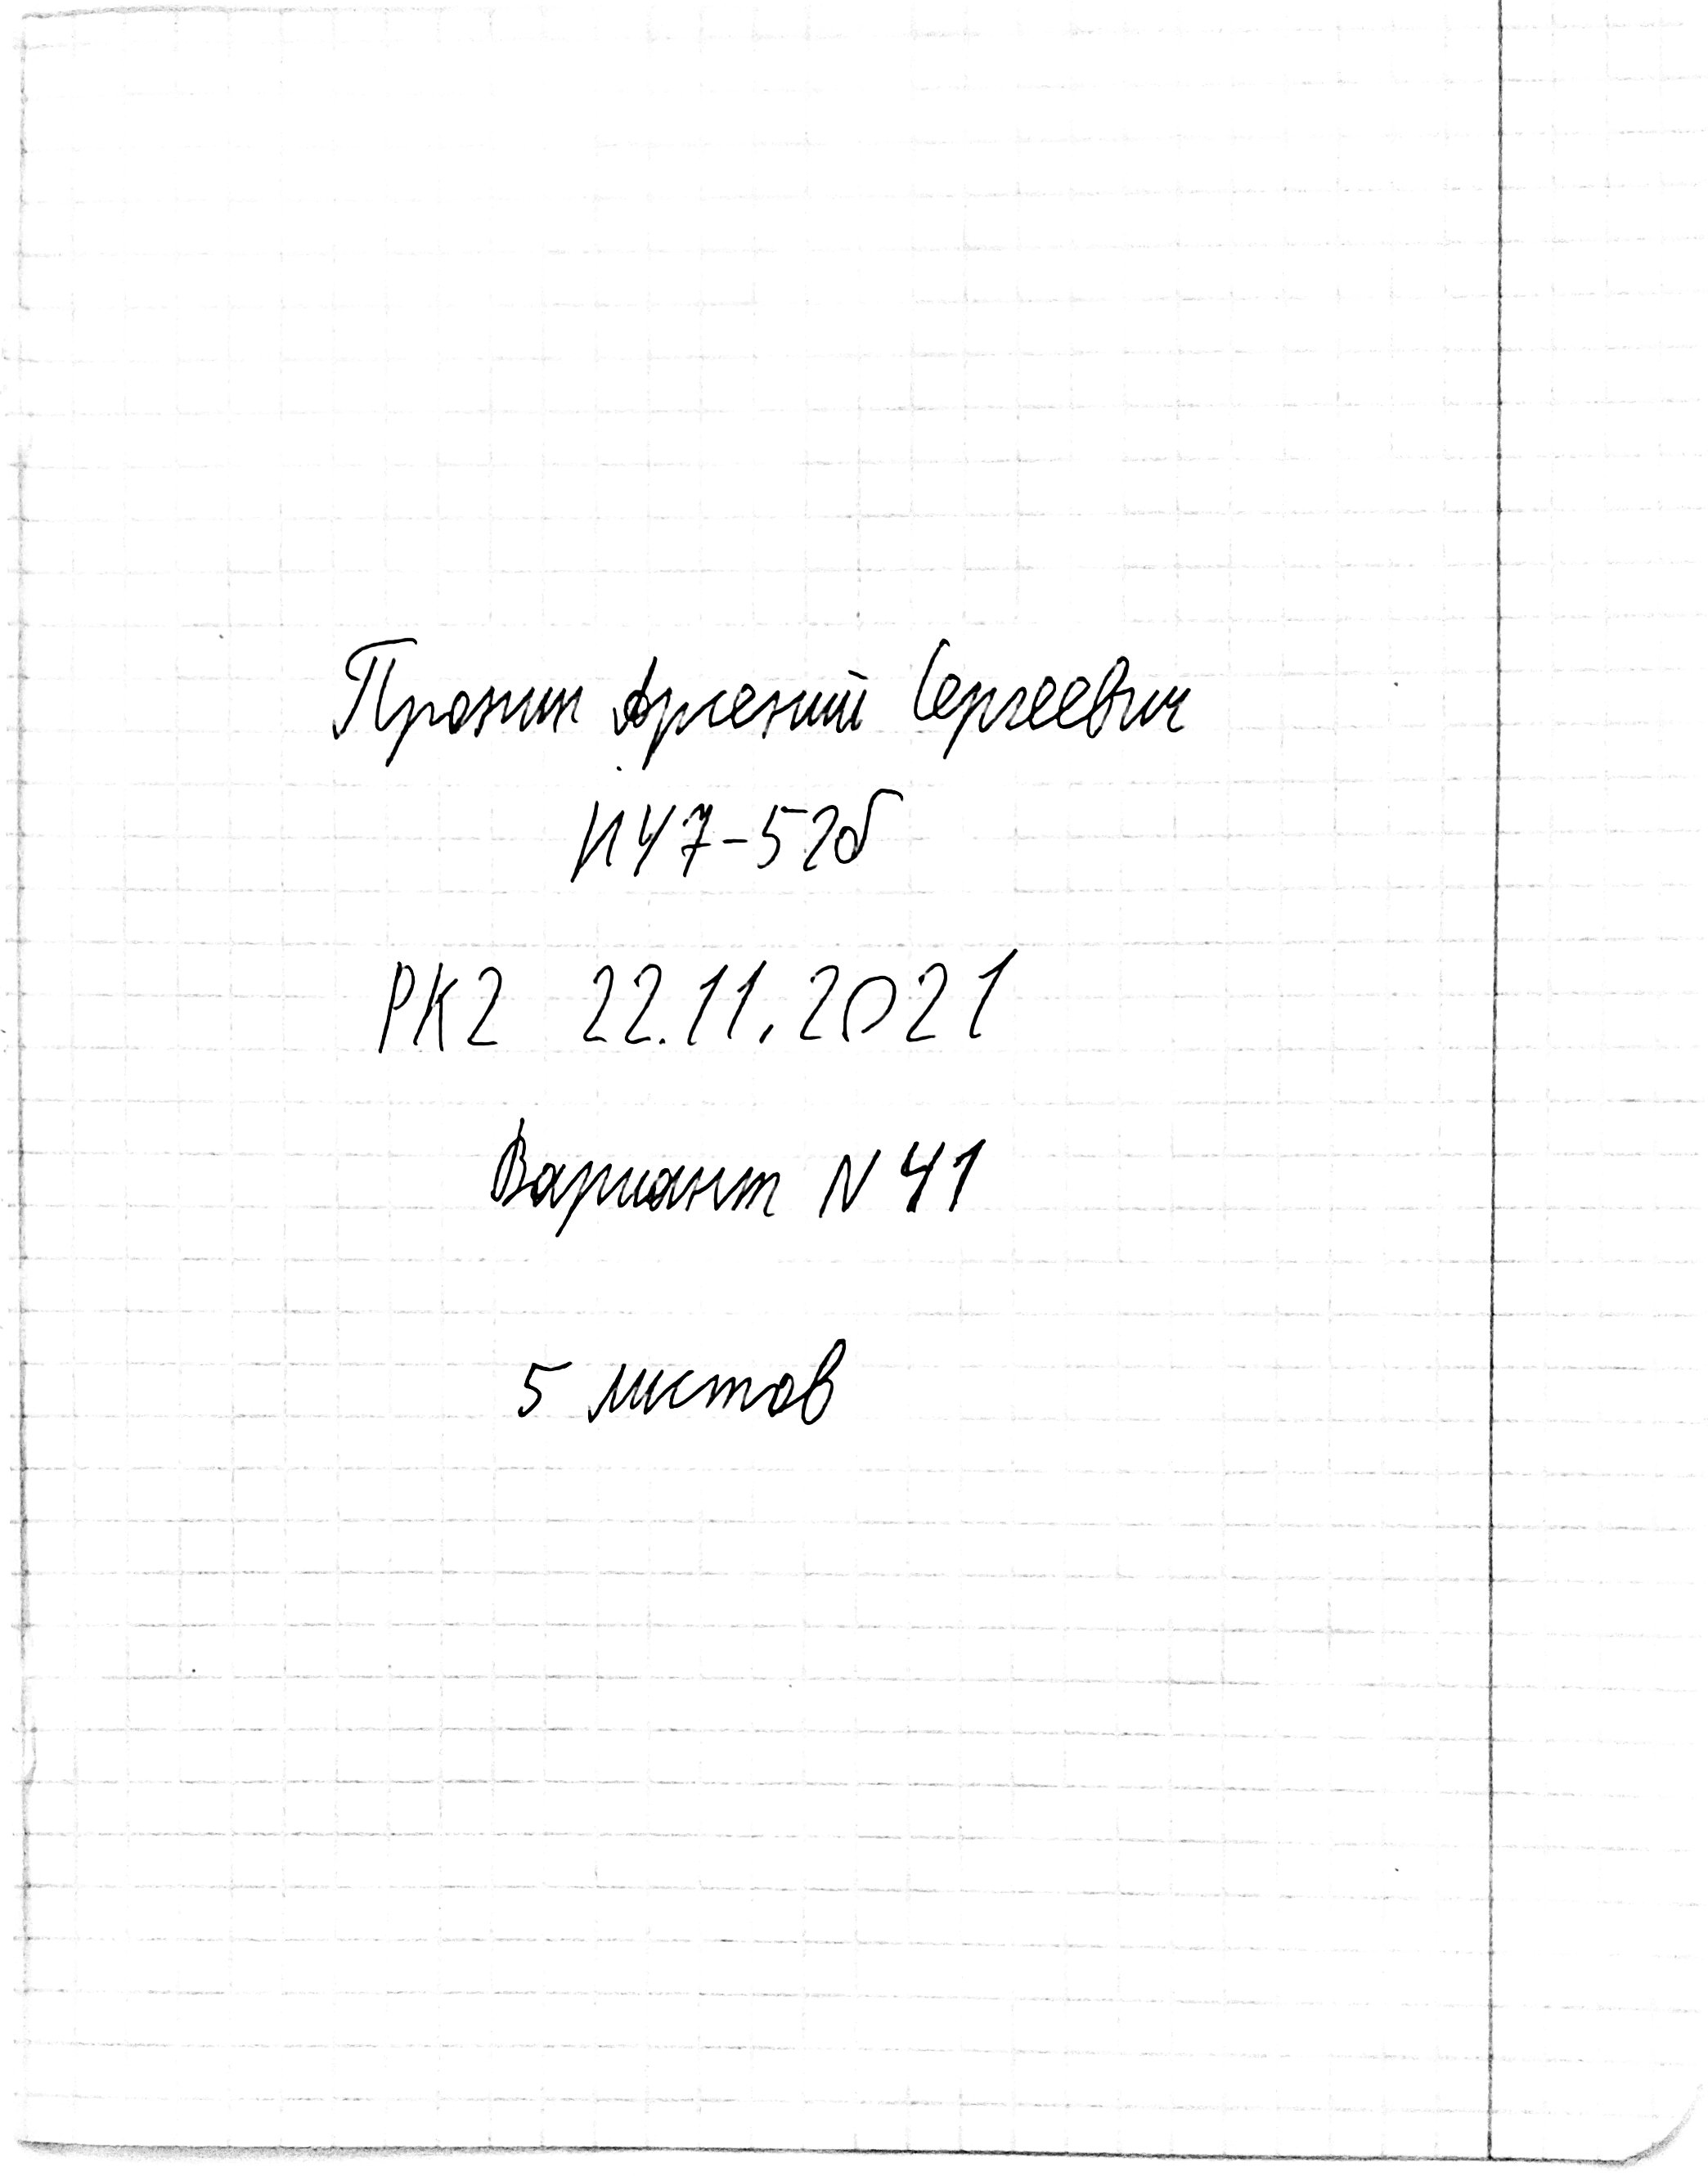 Пронин Арсений Сергеевич
ИУ7-52б
РК2 22.11.2021
Вариант N 41
5 листов